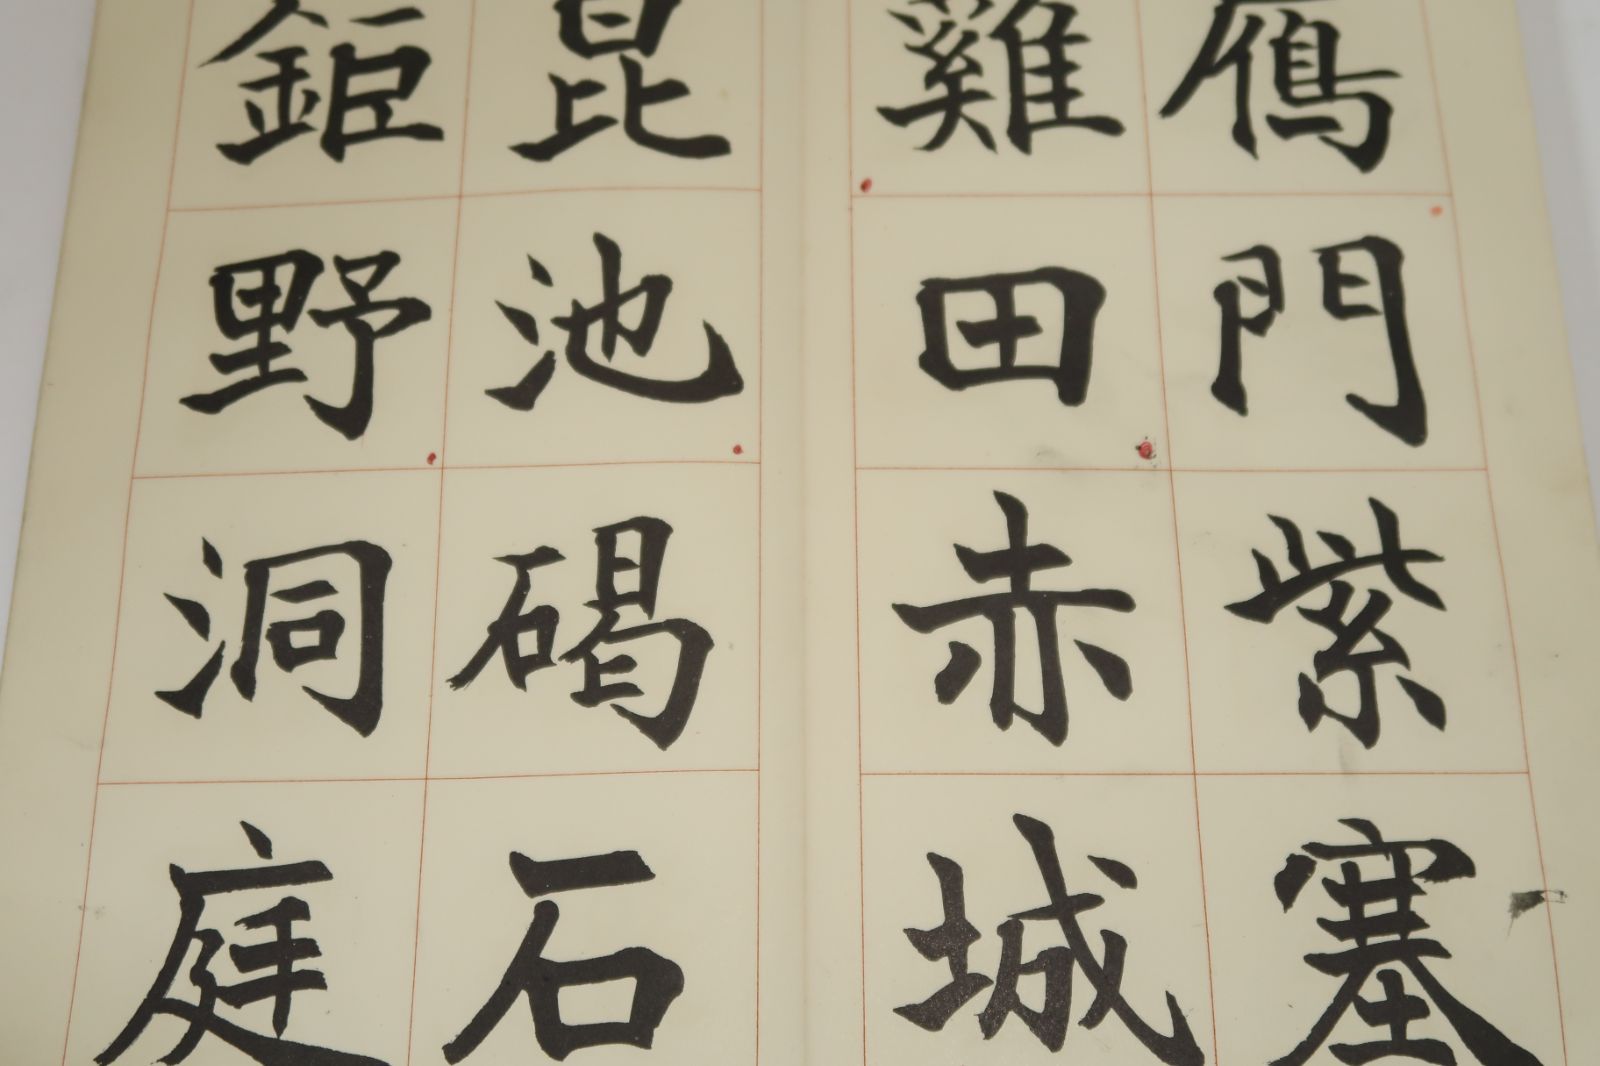 鴈門紫塞
雞田赤城
昆池碣石
鉅野洞庭